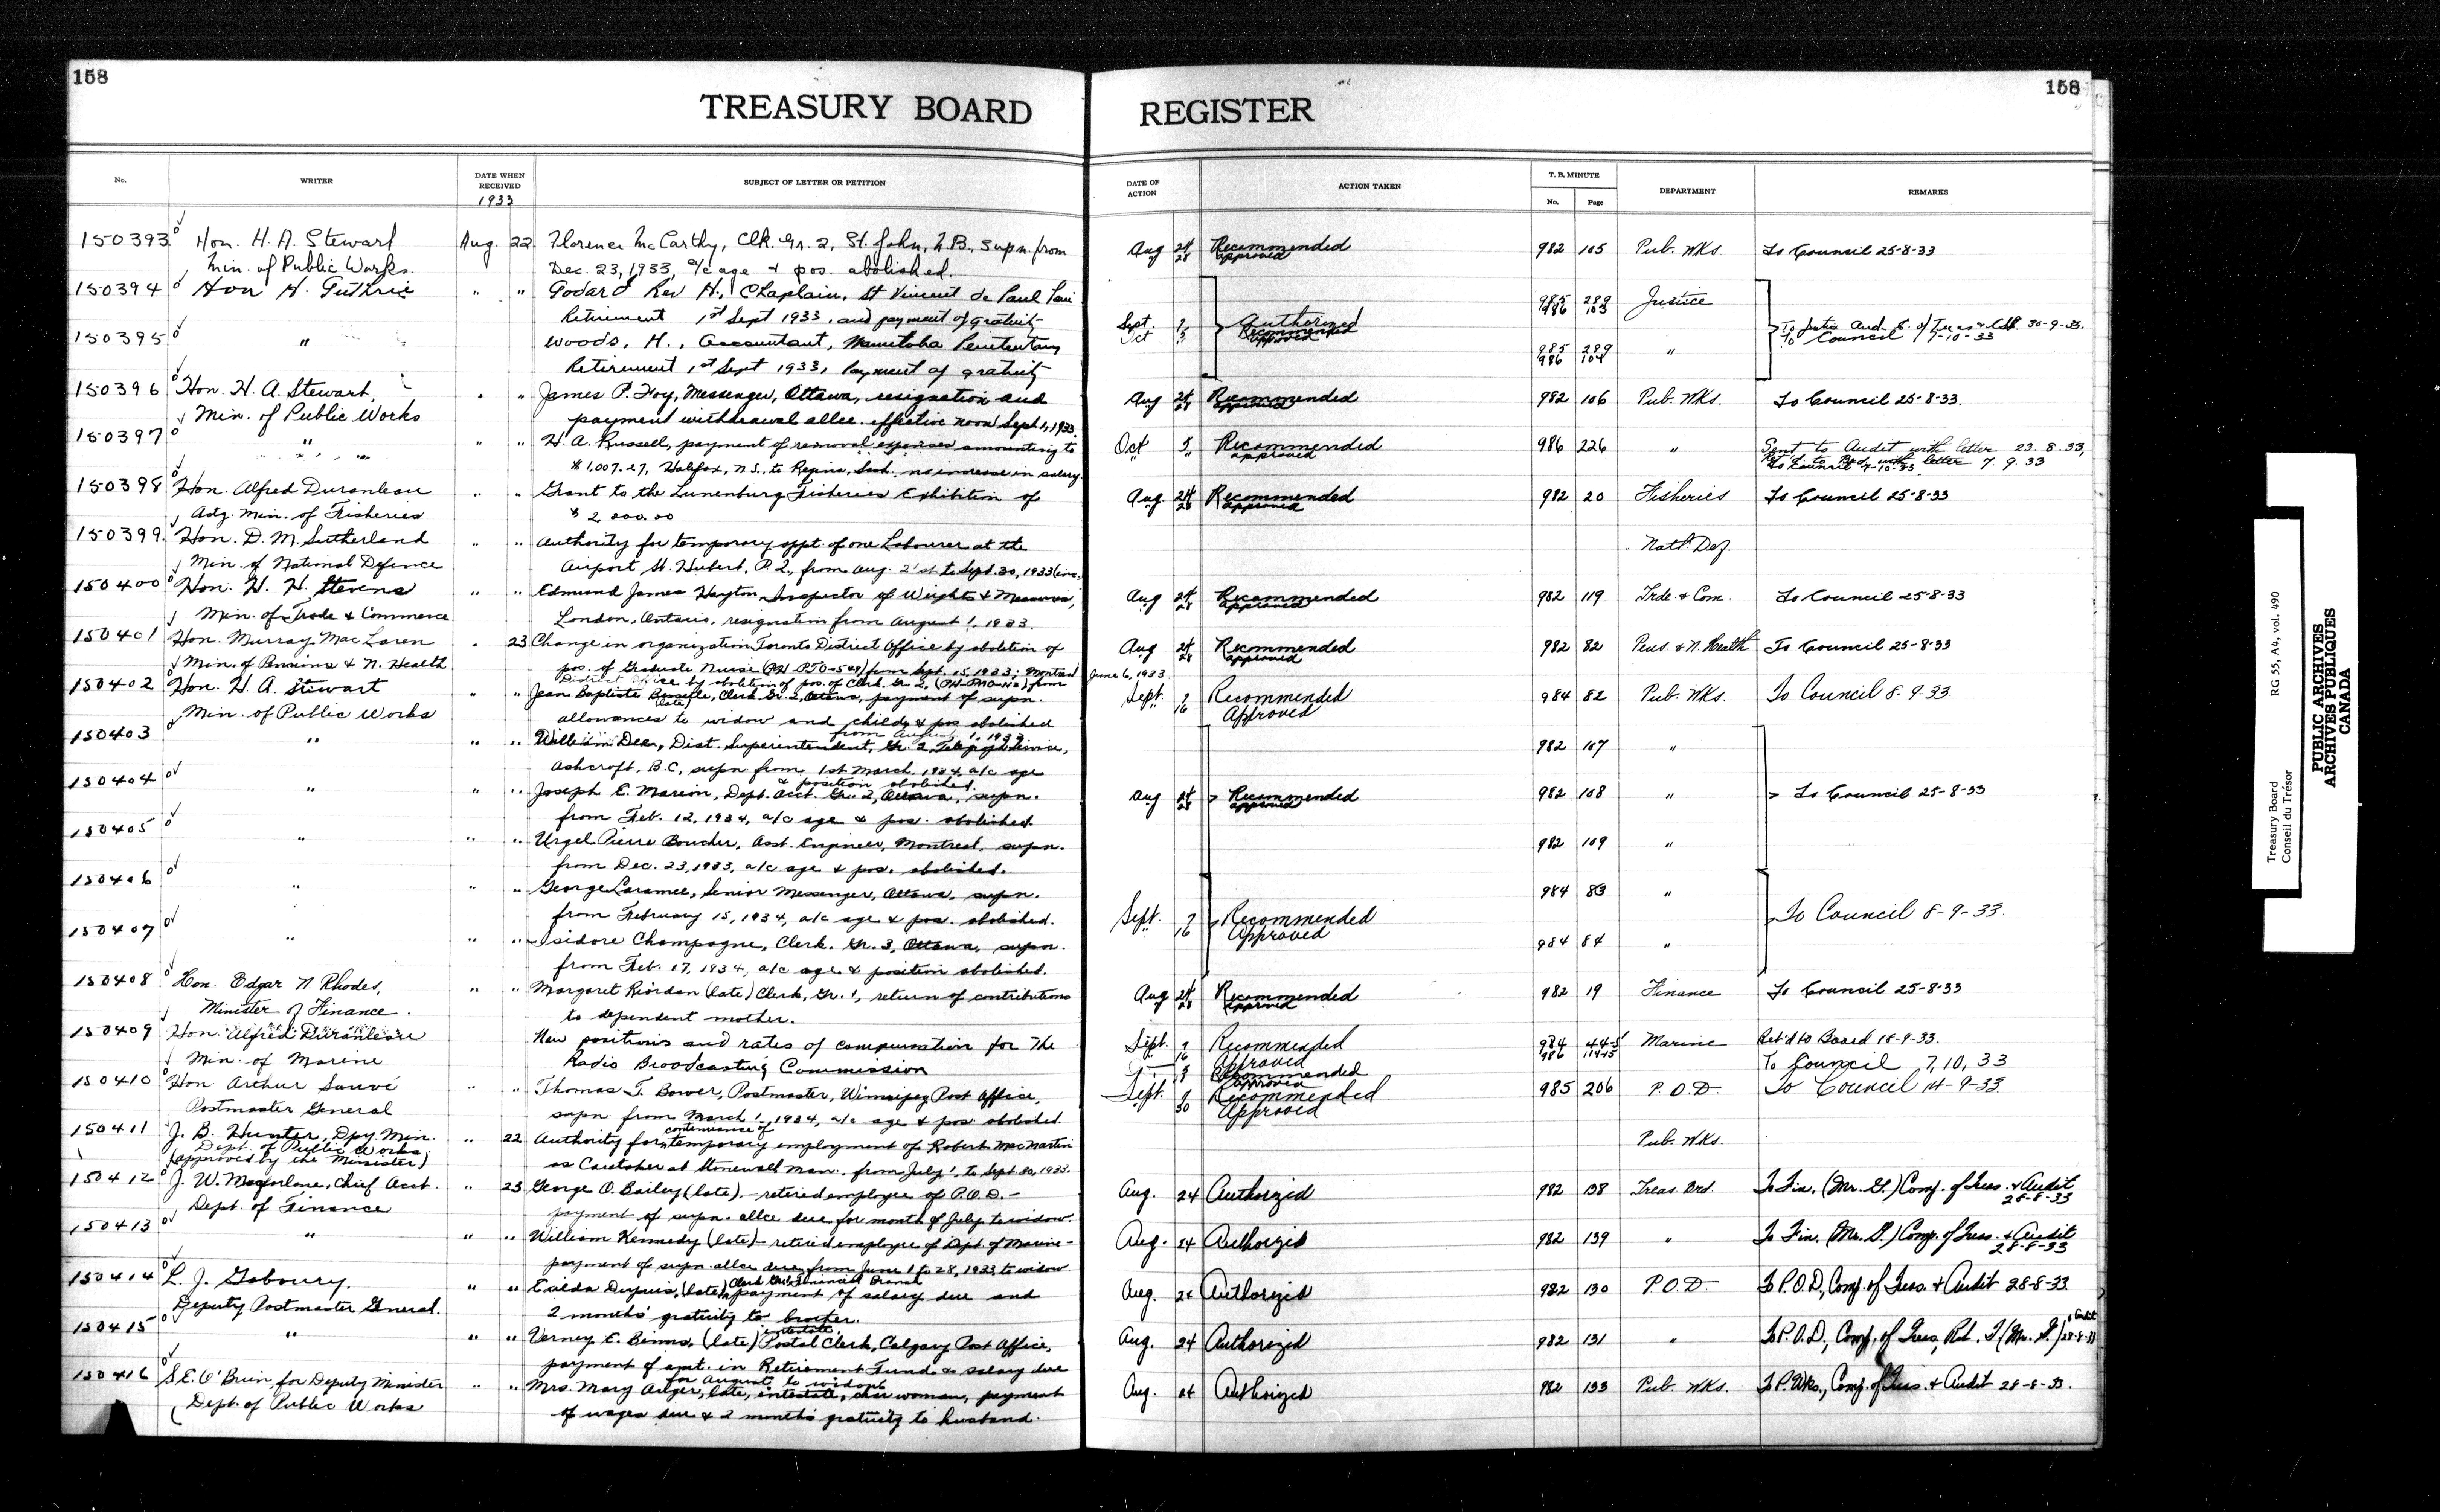 158
TREASURY BOARD
No.
WRITER
DATE WHEN RECEIVED
1933
SUBJECT OF LETTER OR PETITION
150393 Hon. H. A. Stewart Aug. 22 Florence McCarthy, Clk. Gr. 2, St. John, N.B., supn. from
Min. of Public Works. Dec. 23, 1933, a/c age & pos. abolished.
150394 Hon H. Guthrie " " Godard Rev H., Chaplain, St Vincent de Paul Peni
Retirement 1st Sept 1933, and payment of gratuity
150395 " Woods, H., Accountant, Manitoba Penitentiary
Retirement 1st Sept 1933, Payment of gratuity
150396 Hon. H. A. Stewart, " " James P. Foy, Messenger, Ottawa, resignation and
Min. of Public Works payment withdrawal allce. effective noon Sept. 1, 1933
150397 " " " H. A. Russell, payment of removal expenses amounting to
$1,007.27, Halifax, N.S., to Regina, Sask., no increase in salary.
150398 Hon. Alfred Duranleau " " Grant to the Lunenburg Fisheries Exhibition of
Actg. Min. of Fisheries $2,000.00
150399 Hon. D. M. Sutherland " " Authority for temporary appt. of one Labourer at the
Min. of National Defence Airport St. Hubert, P.Q., from Aug. 21st to Sept. 30, 1933 (inc.
150400 Hon. H. H. Stevens " " Edmund James Hayton, Inspector of Weights & Measures,
Min. of Trade & Commerce London, Ontario, resignation from August 1, 1933.
150401 Hon. Murray MacLaren " 23 Change in organization Toronto District Office by abolition of
Min. of Pensions & N. Health pos. of Graduate Nurse from Sept. 15, 1933; Montreal
District Office by abolition of pos. of Clerk, Gr. 2, from
150402 Hon. H. A. Stewart " " Jean Baptiste (late) Clerk Gr. 2, Ottawa, payment of supn.
Min. of Public Works allowances to widow and child & pos abolished
from August 1, 1933
150403 " " " William Dee, Dist. Superintendent, Gr. 2 Service,
Ashcroft, B.C., supn from 1st March, 1934, a/c age
& position abolished.
150404 " " " Joseph E. Marion, Dept. Acct. Gr. 2, Ottawa, supn.
from Feb. 12, 1934, a/c age & pos. abolished.
150405 " " " Urgel Pierre Boucher, Asst. Engineer, Montreal, supn.
from Dec. 23, 1933, a/c age & pos. abolished.
150406 " " " George Laramee, Senior Messenger, Ottawa, supn.
from February 15, 1934, a/c age & pos. abolished.
150407 " " " Isidore Champagne, Clerk. Gr. 3, Ottawa, supn.
from Feb. 17, 1934, a/c age & position abolished.
150408 Hon. Edgar N. Rhodes, " " Margaret Riordan (late) Clerk, Gr. 1, return of contributions
Minister of Finance. to dependent mother.
150409 Hon. Alfred Duranleau New positions and rates of compensation for The
Min. of Marine Radio Broadcasting Commission
150410 Hon Arthur Sauvé " " Thomas T. Bower, Postmaster, Winnipeg Post Office,
Postmaster General supn from March 1, 1934, a/c age & pos abolished.
150411 J. B. Hunter, Dpy. Min. " 22 Authority for continuance of temporary employment of Robert MacMartin
Dept. of Public Works.
(approved by the Minister) as Caretaker at Stonewall Man., from July 1, to Sept 30, 1933.
150412 J. W. Macfarlane, Chief Acct. " 23 George O. Bailey (late), - retired employee of P.O.D. -
Dept. of Finance payment of supn. allce due for month of July to widow.
150413 " " " William Kennedy (late) - retired employee of Dept. of Marine -
payment of supn. allce due from June 1 to 28, 1933 to widow
150414 L. J. Gaboury, " " Dupuis, (late) Clerk Gr. 1, Financial Branch payment of salary due and
Deputy Postmaster General. 2 months' gratuity to brother.
150415 " " " Verney E. Binns, (late) intestate, Postal Clerk, Calgary Post Office,
payment of amt. in Retirement Fund & salary due
for August to widow
150416 S. E. O'Brien for Deputy Minister " " Mrs. Mary Auger, late, intestate, char woman, payment
Dept. of Public Works of wages due & 2 months gratuity to husband.
158
REGISTER
DATE OF ACTION
ACTION TAKEN
T. B. MINUTE
No. Page
DEPARTMENT
REMARKS
Aug 24 Recommended 982 105 Pub. Wks. To Council 25-8-33
28 approved
Sept. Authorized 985 289 Justice
986 103
Oct Recommended
approved Council 7-10-33
985 289 "
986 104
Aug 24 Recommended 982 106 Pub. Wks. To Council 25-8-33.
28 approved
Oct Recommended 986 226 " Sent to Audit with letter 23.8.33,
approved letter 7.9.33
Aug 24 Recommended 982 20 Fisheries To Council 25-8-33
28 approved
Natl. Def.
Aug 24 Recommended 982 119 Trde. & Com. To Council 25-8-33
28 approved
Aug 24 Recommended 982 82 Pens. & N. Health To Council 25-8-33
28 approved
June 6, 1933
Sept. 7 Recommended 984 82 Pub. Wks. To Council 8-9-33.
16 Approved
982 107 "
Aug 24 Recommended 982 108 " To Council 25-8-33
28 approved
982 109 "
984 83 "
Sept. 7 Recommended To Council 8-9-33.
16 Approved
984 84 "
Aug 24 Recommended 982 19 Finance To Council 25-8-33
28 approved
Sept. 7 Recommended 984 44-5 Marine Ret'd to Board 18-9-33.
16 Approved 986 114-15 To Council 7, 10, 33
Recommended
Approved
Sept. Recommended 985 206 P.O.D. To Council 14-9-33
30 Approved
Pub. Wks.
Aug. 24 Authorized 982 138 Treas. Brd. To Fin. (Mr. G.) Comp. of Treas. & Audit
28-8-33
Aug. 24 Authorized 982 139 " To Fin. (Mr. G.) Comp. of Treas. & Audit
28-8-33
Aug. 24 Authorized 982 130 P.O.D. To P.O.D, Comp. of Treas. & Audit 28-8-33.
Aug. 24 Authorized 982 131 " To P.O.D, Comp. of Treas, Ret. F (Mr. G.) & Audit 28-8-33
Aug. 24 Authorized 982 133 Pub. Wks. To P. Wks., Comp. of Treas. & Audit 28-8-33.
Treasury Board RG 55, A4, vol. 490
Conseil du Trésor
PUBLIC ARCHIVES
ARCHIVES PUBLIQUES
CANADA